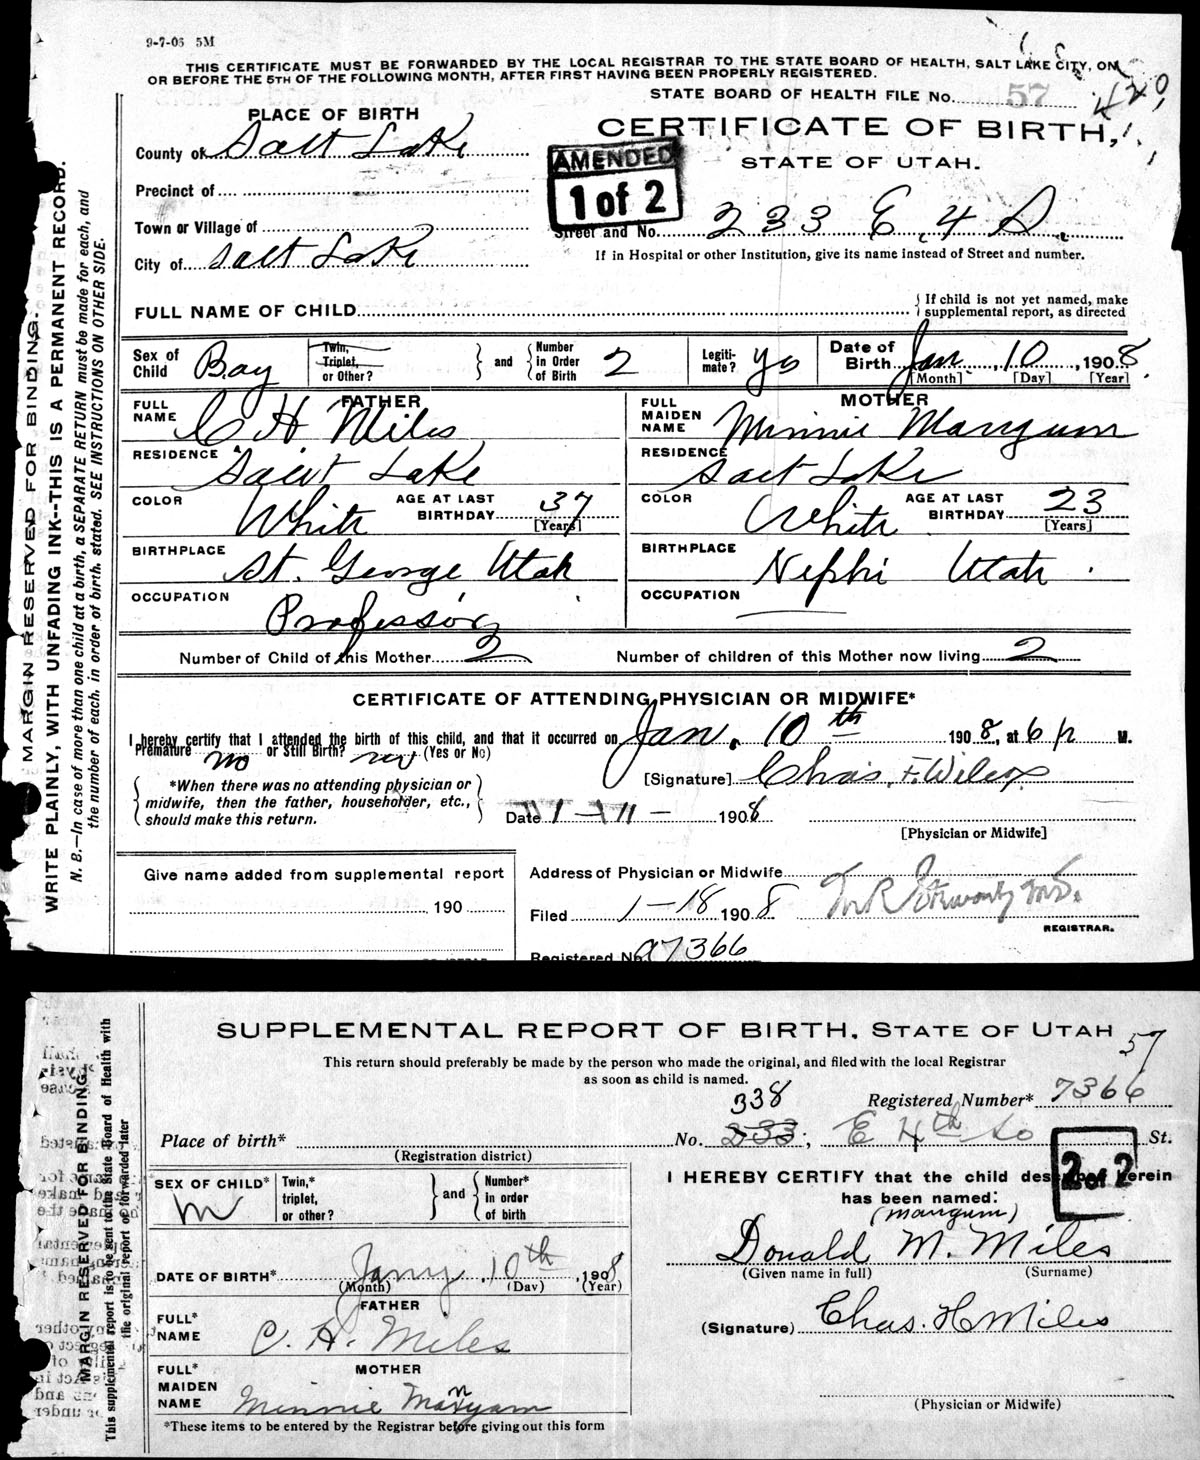 9-7-05 5M
THIS CERTIFICATE MUST BE FORWARDED BY THE LOCAL REGISTRAR TO THE STATE BOARD OF HEALTH, SALT LAKE CITY, ON
OR BEFORE THE 5TH OF THE FOLLOWING MONTH, AFTER FIRST HAVING BEEN PROPERLY REGISTERED.
STATE BOARD OF HEALTH FILE No. 57
PLACE OF BIRTH
CERTIFICATE OF BIRTH,
STATE OF UTAH.
County of Salt Lake
AMENDED
1 of 2
Precinct of
Town or Village of
Street and No. 233 E. 4 S.
City of Salt Lake
If in Hospital or other Institution, give its name instead of Street and number.
FULL NAME OF CHILD
If child is not yet named, make
supplemental report, as directed
Sex of Child Boy
Twin, Triplet, or Other?
and
Number in Order of Birth 2
Legiti-mate? yes
Date of Birth Jan. 10, 1908.
[Month] [Day] [Year]
FATHER
FULL NAME C. H Miles
MOTHER
FULL MAIDEN NAME Minnie Mangum
RESIDENCE Salt Lake
RESIDENCE Salt Lake
COLOR White
AGE AT LAST BIRTHDAY 37
[Years]
COLOR White
AGE AT LAST BIRTHDAY 23
[Years]
BIRTHPLACE St. George Utah
BIRTHPLACE Nephi Utah.
OCCUPATION Professor
OCCUPATION
Number of Child of this Mother 2
Number of children of this Mother now living 2
CERTIFICATE OF ATTENDING PHYSICIAN OR MIDWIFE*
I hereby certify that I attended the birth of this child, and that it occurred on Jan. 10th 1908, at 6 P. M.
Premature no or Still Birth? no (Yes or No)
*When there was no attending physician or
midwife, then the father, householder, etc.,
should make this return.
[Signature] Chas. F. Wilcox
Date 1-11- 1908
[Physician or Midwife]
Give name added from supplemental report
190
Address of Physician or Midwife
Filed 1-18 1908
REGISTRAR.
Registered No. a7366
MARGIN RESERVED FOR BINDING.
WRITE PLAINLY, WITH UNFADING INK--THIS IS A PERMANENT RECORD.
N. B.—In case of more than one child at a birth, a SEPARATE RETURN must be made for each, and
the number of each, in order of birth, stated. SEE INSTRUCTIONS ON OTHER SIDE.
SUPPLEMENTAL REPORT OF BIRTH, STATE OF UTAH
57
This return should preferably be made by the person who made the original, and filed with the local Registrar
as soon as child is named.
Registered Number* 7366
338
Place of birth* No. 233; E 4th So St.
(Registration district)
2 of 2
SEX OF CHILD* M
Twin, triplet, or other?
and
Number* in order of birth
I HEREBY CERTIFY that the child described herein
has been named:
(Mangum)
Donald M. Miles
(Given name in full) (Surname)
DATE OF BIRTH* Jany. 10th, 1908
(Month) (Day) (Year)
FATHER
FULL* NAME C. H. Miles
(Signature) Chas. H Miles
MOTHER
FULL* MAIDEN NAME Minnie Mangum
(Physician or Midwife)
*These items to be entered by the Registrar before giving out this form
MARGIN RESERVED FOR BINDING.
This supplemental report is to be sent to the State Board of Health with
the original report or forwarded later